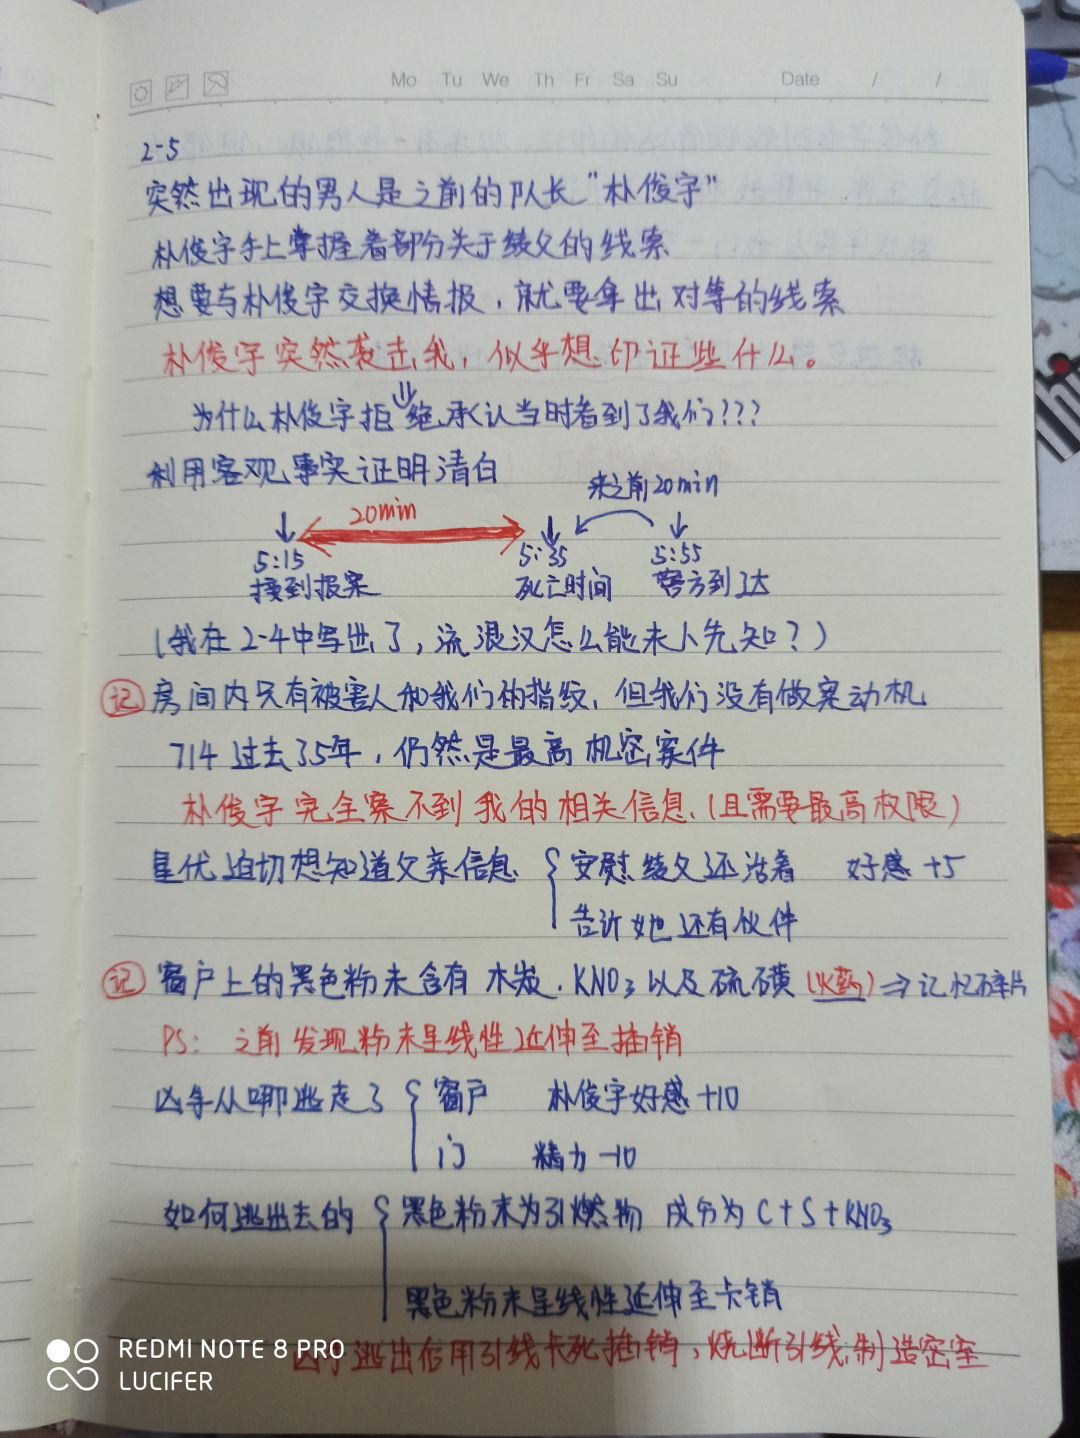 Mo Tu We Th Fr Sa Su Date / /
2-5
突然出现的男人是之前的队长“朴俊宇”
朴俊宇手上掌握着部分关于绫父的线索
想要与朴俊宇交换情报，就要拿出对等的线索
朴俊宇突然袭击我，似乎想印证些什么。
为什么朴俊宇拒绝承认当时看到了我们???
利用客观事实证明清白
来之前20min
20min
5:15 5:35 5:55
接到报案 死亡时间 警方到达
(我在2-4中写出了，流浪汉怎么能未卜先知?)
记 房间内只有被害人和我们的指纹，但我们没有做案动机
714过去35年，仍然是最高机密案件
朴俊宇完全察不到我的相关信息.(且需要最高权限)
星优迫切想知道父亲信息 { 安慰绫父还活着 好感+5
告诉她还有伙伴
记 窗户上的黑色粉末含有木炭.KNO3以及硫磺(火药)⇒记忆碎片
PS: 之前发现粉末呈线性延伸至插销
凶手从哪逃走了 { 窗户 朴俊宇好感+10
门 精力-10
如何逃出去的 { 黑色粉末为引燃物 成分为C+S+KNO3
黑色粉末呈线性延伸至卡销
凶手逃出后用引线卡死插销，烧断引线,制造密室
REDMI NOTE 8 PRO
LUCIFER